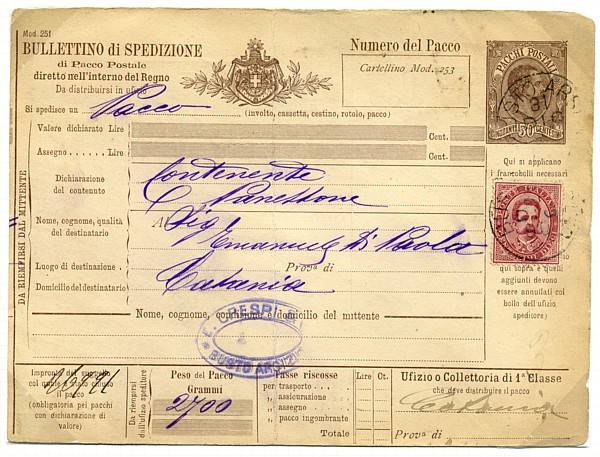 Mod. 251
BULLETTINO di SPEDIZIONE
di Pacco Postale
diretto nell'interno del Regno
Da distribuirsi in ufizio
Numero del Pacco
Cartellino Mod. 253
PACCHI POSTALI
50
Si spedisce un Pacco (involto, cassetta, cestino, rotolo, pacco)
Valore dichiarato Lire Cent.
Assegno Lire Cent.
Qui si applicano i francobolli necessari
DA RIEMPIRSI DAL MITTENTE
Dichiarazione del contenuto
Contenente
Panettone
Nome, cognome, qualità del destinatario
Al Sig Emanuele Di Paola
Luogo di destinazione
Prova di
Domicilio del destinatario
Catania
sopra e quelli aggiunti devono essere annullati col bollo dell'ufizio speditore
Nome, cognome, condizione e domicilio del mittente
CRESPI
BUSTO ARSIZIO
Impronta del suggello col quale è stato chiuso il pacco
(obbligatoria pei pacchi con dichiarazione di valore)
Da riempirsi dall'ufizio speditore
Peso del Pacco
Grammi
2700
Tasse riscosse Lire Ct.
per trasporto
„ assicurazione
„ assegno
„ pacco ingombrante
Totale
Ufizio o Collettoria di 1ª Classe
che deve distribuire il pacco
Catania
Prova di